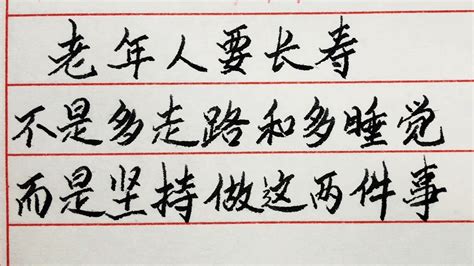 老年人要长寿
不是多走路和多睡觉
而是坚持做这两件事